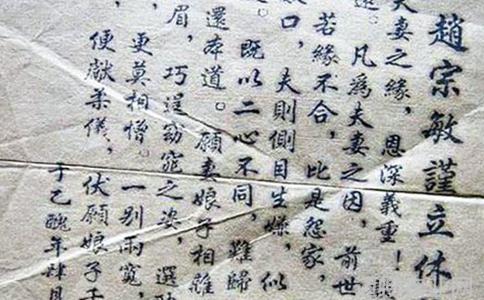 趙宗敏謹立休
夫妻之緣，恩深義重！
。凡為夫妻之因，前世
若緣不合，比是怨家，
口，夫則側目生嫌，似
。既以二心不同，難歸
還本道。願妻娘子相離
眉，巧逞窈窕之姿，選
，更莫相憎。一別兩寬，
便獻柔儀。伏願娘子千
于乙醜年肆月